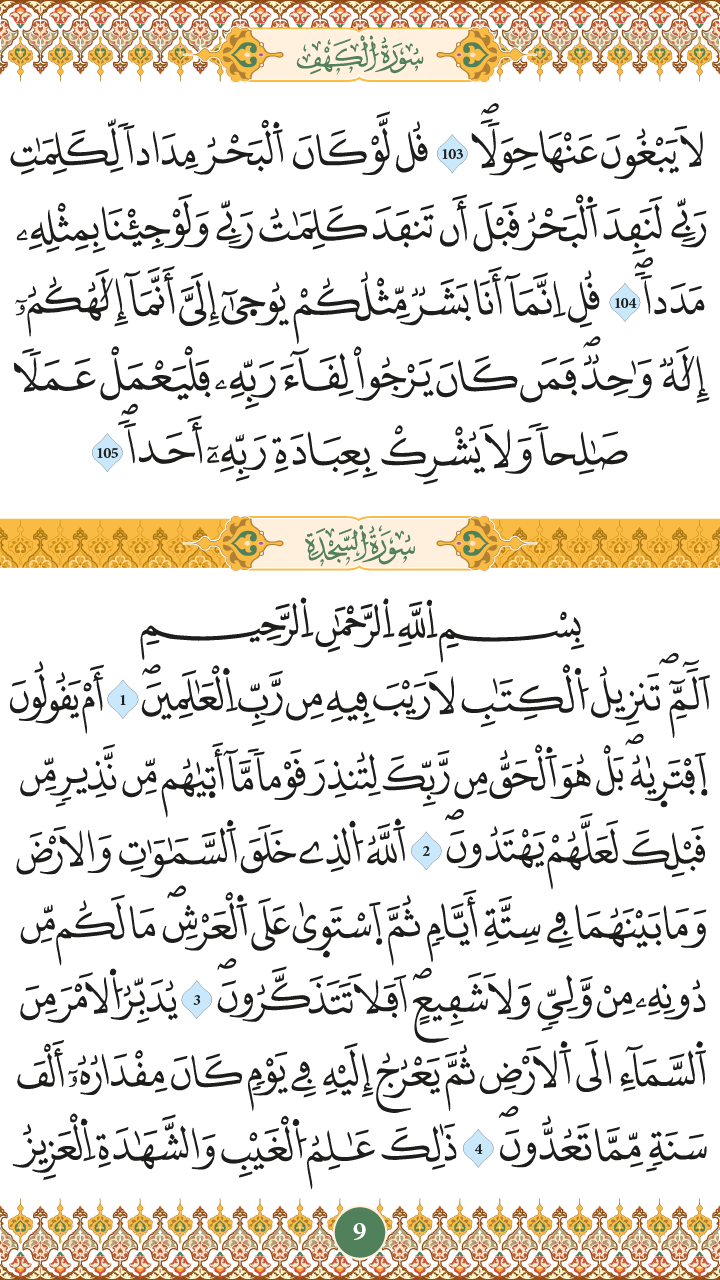 سُورَةُ الْكَهْفِ
لاَ يَبْغُونَ عَنْهَا حِوَلاًۖ 103 قُل لَّوْ كَانَ اَ۬لْبَحْرُ مِدَاداٗ لِّكَلِمَٰتِ
رَبِّے لَنَفِدَ اَ۬لْبَحْرُ قَبْلَ أَن تَنفَدَ كَلِمَٰتُ رَبِّے وَلَوْ جِئْنَا بِمِثْلِهِۦ
مَدَداٗۖ 104 قُلِ اِنَّمَآ أَنَا بَشَرٞ مِّثْلُكُمْ يُوح۪ىٰٓ إِلَيَّ أَنَّمَآ إِلَٰهُكُمُۥٓ
إِلَٰهٞ وَٰحِدٞۖ فَمَن كَانَ يَرْجُواْ لِقَآءَ رَبِّهِۦ فَلْيَعْمَلْ عَمَلاٗ
صَٰلِحاٗ وَلاَ يُشْرِكْ بِعِبَادَةِ رَبِّهِۦٓ أَحَداٗۖ 105
سُورَةُ السَّجْدَةِ
بِسْمِ اِ۬للَّهِ اِ۬لرَّحْمَٰنِ اِ۬لرَّحِيمِ
أَلَٓمِّٓۖ تَنزِيلُ اُ۬لْكِتَٰبِ لاَ رَيْبَ فِيهِ مِن رَّبِّ اِ۬لْعَٰلَمِينَۖ 1 أَمْ يَقُولُونَ
اَ۪فْتَر۪يٰهُۖ بَلْ هُوَ اَ۬لْحَقُّ مِن رَّبِّكَ لِتُنذِرَ قَوْماٗ مَّآ أَت۪يٰهُم مِّن نَّذِيرٖ مِّن
قَبْلِكَ لَعَلَّهُمْ يَهْتَدُونَۖ 2 اَ۬للَّهُ اُ۬لذِے خَلَقَ اَ۬لسَّمَٰوَٰتِ وَالَارْضَ
وَمَا بَيْنَهُمَا فِے سِتَّةِ أَيَّامٖ ثُمَّ اَ۪سْتَو۪ىٰ عَلَى اَ۬لْعَرْشِۖ مَا لَكُم مِّن
دُونِهِۦ مِنْ وَّلِيّٖ وَلاَ شَفِيعٍۖ اَفَلاَ تَتَذَكَّرُونَۖ 3 يُدَبِّرُ اُ۬لَامْرَ مِنَ
اَ۬لسَّمَآءِ اِلَى اَ۬لَارْضِ ثُمَّ يَعْرُجُ إِلَيْهِ فِے يَوْمٖ كَانَ مِقْدَارُهُۥٓ أَلْفَ
سَنَةٖ مِّمَّا تَعُدُّونَۖ 4 ذَٰلِكَ عَٰلِمُ اُ۬لْغَيْبِ وَالشَّهَٰدَةِ اِ۬لْعَزِيزُ
9